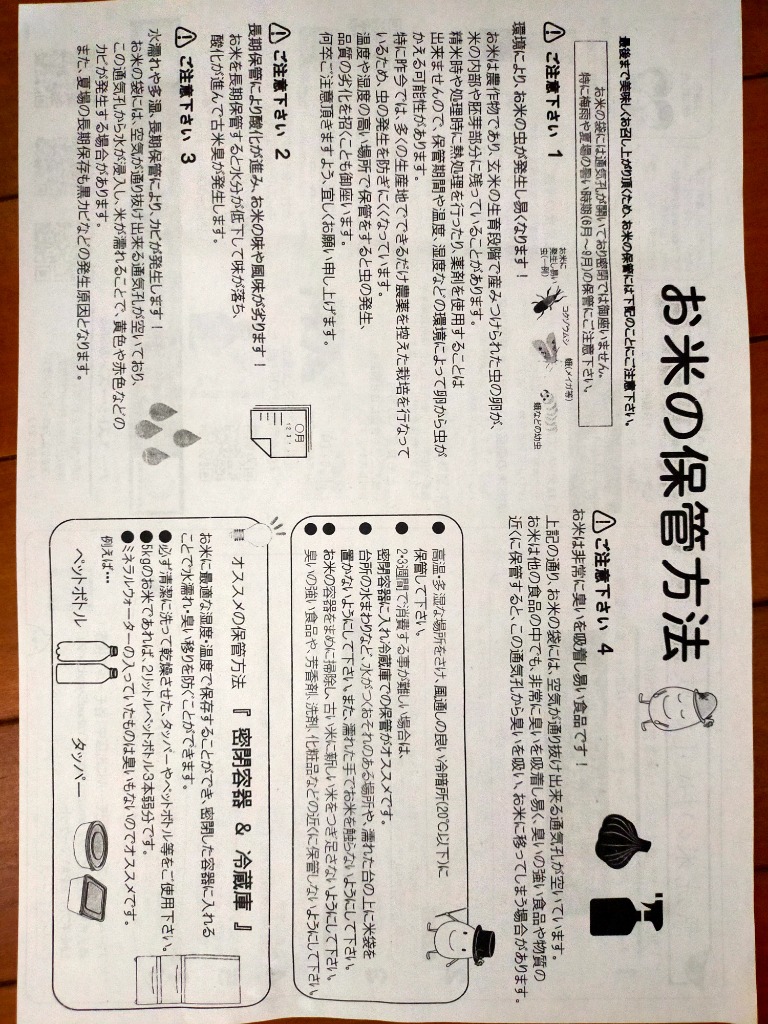 お米の保管方法
最後まで美味しくお召し上がり頂くため、お米の保管には下記のことにご注意下さい。
お米の袋には通気孔が開いており密閉では御座いません。
特に梅雨や夏場の暑い時期(6月~9月)の保管にご注意下さい。
ご注意下さい 1
環境により、お米の虫が発生し易くなります！
お米に
発生し易い
虫(一例)
コクゾウムシ
蛾(メイガ等)
蛾などの幼虫
お米は農作物であり、玄米の生育段階で産みつけられた虫の卵が、
米の内部や胚芽部分に残っていることがあります。
精米時や処理時に熱処理を行ったり、薬剤を使用することは
出来ませんので、保管期間や温度、湿度などの環境によって卵から虫が
かえる可能性があります。
特に昨今では、多くの生産地でできるだけ農薬を控えた栽培を行なって
いるため、虫の発生を防ぎにくくなっています。
温度や湿度の高い場所で保管をすると虫の発生、
品質の劣化を招くことも御座います。
何卒ご注意頂きますよう、宜しくお願い申し上げます。
ご注意下さい 2
長期保管により酸化が進み、お米の味や風味が劣ります！
お米を長期保管すると水分が低下して味が落ち、
酸化が進んで古米臭が発生します。
〇月
1 2 3
ご注意下さい 3
水濡れや多湿、長期保管により、カビが発生します！
お米の袋には、空気が通り抜け出来る通気孔が空いており、
この通気孔から水が浸入し、米が濡れることで、黄色や赤色などの
カビが発生する場合があります。
また、夏場の長期保存も黒カビなどの発生原因となります。
ご注意下さい 4
お米は非常に臭いを吸着し易い食品です！
上記の通り、お米の袋には、空気が通り抜け出来る通気孔が空いています。
お米は他の食品の中でも、非常に臭いを吸着し易く、臭いの強い食品や物質の
近くに保管すると、この通気孔から臭いを吸い、お米に移ってしまう場合があります。
●高温・多湿な場所をさけ、風通しの良い冷暗所(20℃以下)に
保管して下さい。
●2・3週間で消費する事が難しい場合は、
密閉容器に入れ冷蔵庫での保管がオススメです。
●台所の水まわりなど、水がつくおそれのある場所や、濡れた台の上に米袋を
置かないようにして下さい。また、濡れた手でお米を触らないようにして下さい。
●お米の容器をまめに掃除し、古い米に新しい米をつぎ足さないようにして下さい。
●臭いの強い食品や、芳香剤、洗剤、化粧品などの近くに保管しないようにして下さい。
オススメの保管方法 『 密閉容器 & 冷蔵庫 』
お米に最適な湿度・温度で保存することができ、密閉した容器に入れる
ことで水濡れ・臭い移りを防ぐことができます。
●必ず清潔に洗って乾燥させた、タッパーやペットボトル等をご使用下さい。
●5kgのお米であれば、2リットルペットボトル3本弱分です。
●ミネラルウォーターの入っていたものは臭いもないのでオススメです。
例えば…
ペットボトル
タッパー